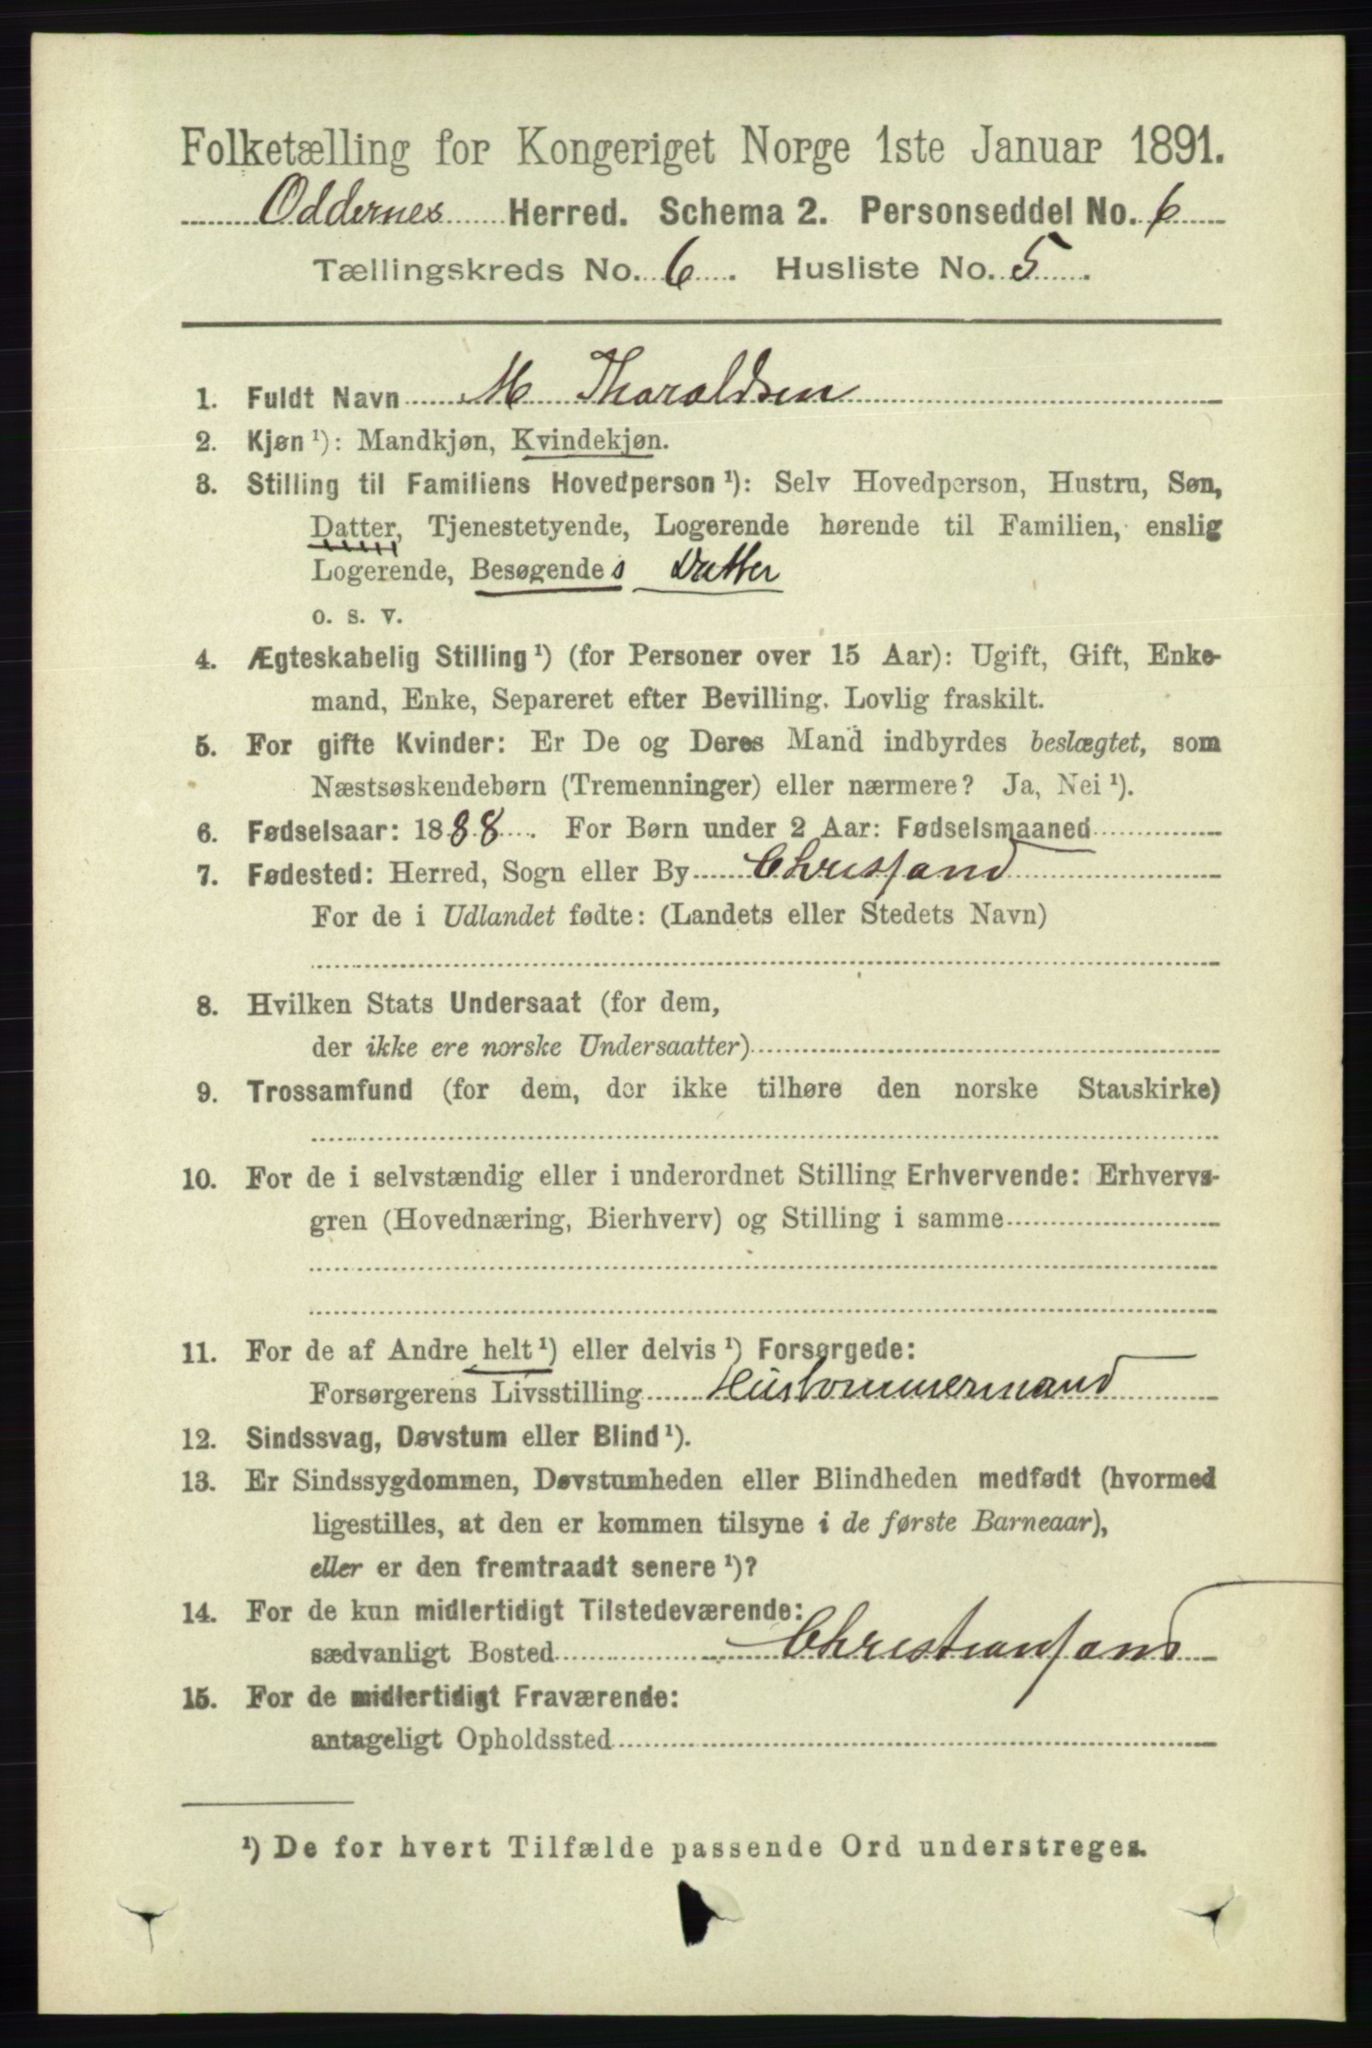 Folketælling for Kongeriget Norge 1ste Januar 1891.
Oddernes Herred. Schema 2. Personseddel No. 6
Tællingskreds No. 6. Husliste No. 5.
1. Fuldt Navn M Tharaldsen
2. Kjøn ¹): Mandkjøn, Kvindekjøn.
3. Stilling til Familiens Hovedperson ¹): Selv Hovedperson, Hustru, Søn,
Datter, Tjenestetyende, Logerende hørende til Familien, enslig
Logerende, Besøgendes Datter
o. s. v.
4. Ægteskabelig Stilling ¹) (for Personer over 15 Aar): Ugift, Gift, Enke-
mand, Enke, Separeret efter Bevilling. Lovlig fraskilt.
5. For gifte Kvinder: Er De og Deres Mand indbyrdes beslægtet, som
Næstsøskendebørn (Tremenninger) eller nærmere? Ja, Nei ¹).
6. Fødselsaar: 1888. For Børn under 2 Aar: Fødselsmaaned
7. Fødested: Herred, Sogn eller By Chrissand
For de i Udlandet fødte: (Landets eller Stedets Navn)
8. Hvilken Stats Undersaat (for dem,
der ikke ere norske Undersaatter)
9. Trossamfund (for dem, der ikke tilhøre den norske Statskirke)
10. For de i selvstændig eller i underordnet Stilling Erhvervende: Erhvervs-
gren (Hovednæring, Bierhverv) og Stilling i samme
11. For de af Andre helt ¹) eller delvis ¹) Forsørgede:
Forsørgerens Livsstilling Hustømmermand
12. Sindssvag, Døvstum eller Blind ¹).
13. Er Sindssygdommen, Døvstumheden eller Blindheden medfødt (hvormed
ligestilles, at den er kommen tilsyne i de første Barneaar),
eller er den fremtraadt senere ¹)?
14. For de kun midlertidigt Tilstedeværende:
sædvanligt Bosted Christiansand
15. For de midlertidigt Fraværende:
antageligt Opholdssted
¹) De for hvert Tilfælde passende Ord understreges.